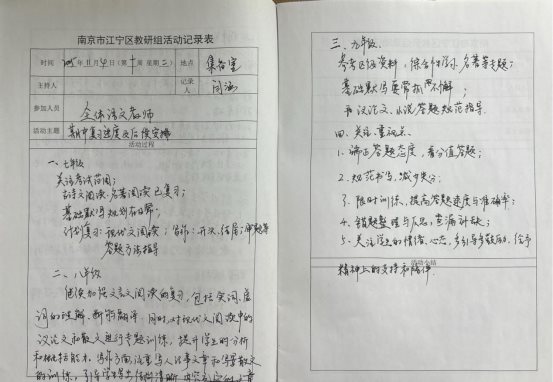 南京市江宁区教研组活动记录表
时间 年11月4日(第十周 星期二) 地点 集备室
主持人 记录人
参加人员 全体语文教师
活动主题 期中复习进度及后续安排
活动过程
一、七年级
关注考试范围;
文言文阅读、名著阅读已复习;
基础默写规划
计划复习:现代文阅读;写作:开头、结尾、审题等
答题方法指导
二、八年级
继续加强文言文阅读的复习,包括实词、虚
词的理解、断句翻译;同时,对现代文阅读中的
议论文和散文进行专题训练,提升学生的分析
和概括能力。写作方面,注重写人记事文章和写景散文
的训练,引导学生
三、九年级。
参考区级资料,综合性学习、名著等专题;
基础默写要常抓不懈;
议论文、小说答题规范指导。
四、关注、重视点
1、端正答题态度,看分值答题;
2、规范书写,减少失分;
3、限时训练,提高答题速度与准确率;
4、错题整理与反思,查漏补缺;
5、关注学生的情绪、心态,多引导多鼓励,给予
活动小结
精神上的支持和陪伴。